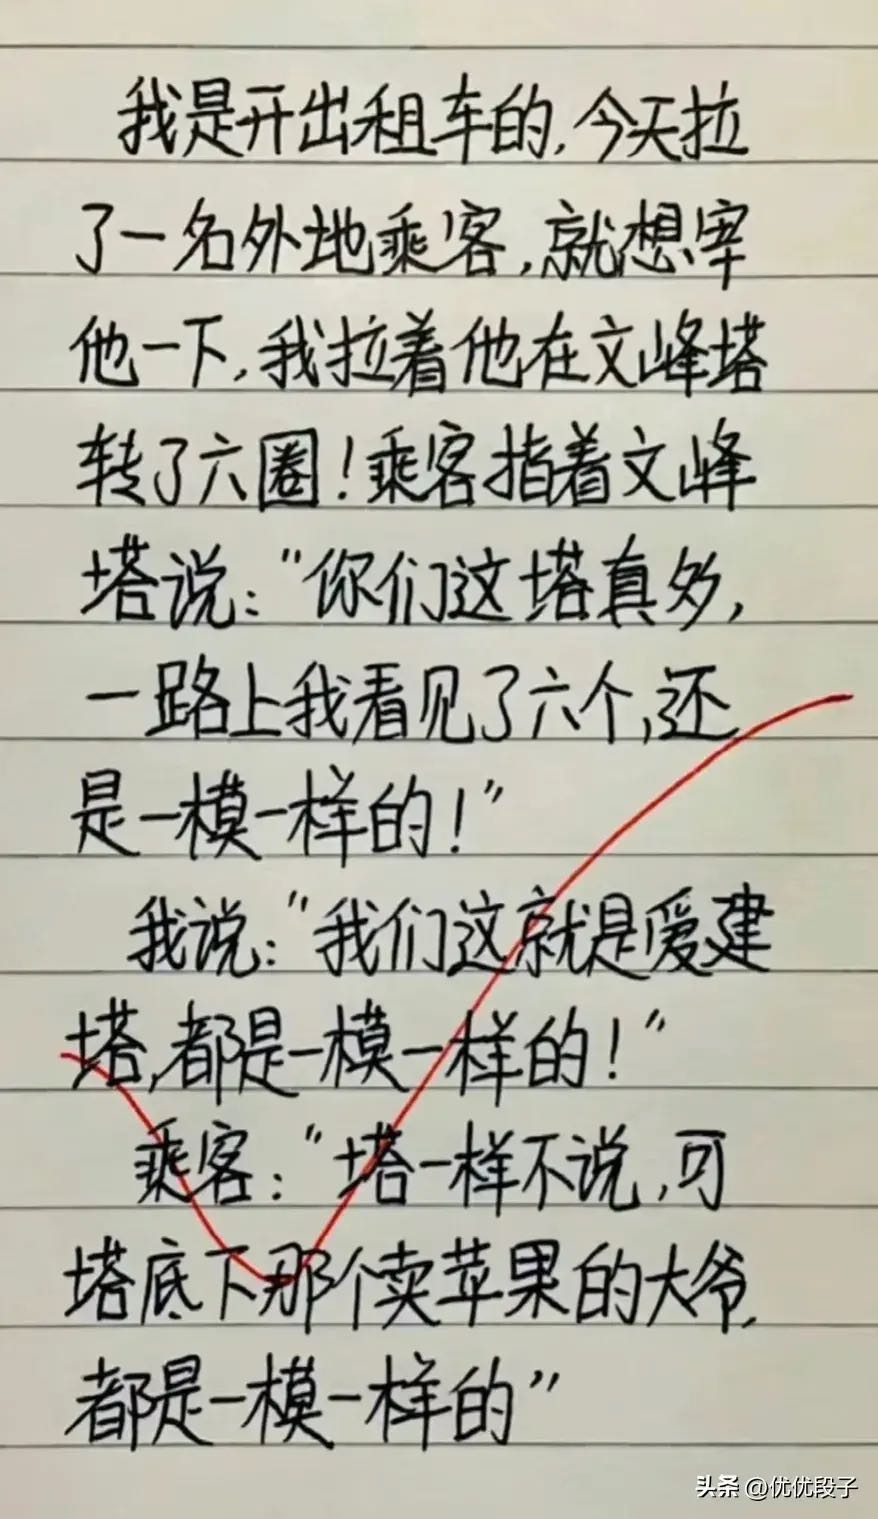 我是开出租车的,今天拉
了一名外地乘客,就想宰
他一下,我拉着他在文峰塔
转了六圈!乘客指着文峰
塔说:"你们这塔真多,
一路上我看见了六个,还
是一模一样的!"
我说:"我们这就是爱建
塔,都是一模一样的!"
乘客:"塔一样不说,可
塔底下那个卖苹果的大爷,
都是一模一样的"
头条 @优优段子